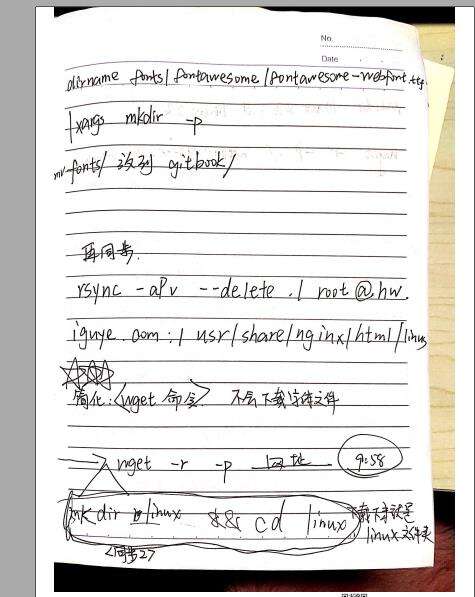 No.
Date
dirname fonts/fontawesome/fontawesome-webfont.ttf
|xargs mkdir -p
mv fonts/ 放到 gitbook/
再同步.
rsync -aPv --delete ./ root@hw.
iguye.com:/usr/share/nginx/html/linux
简化:<wget 命令> 不会下载字体文件
wget -r -p 网址 9:58
mkdir linux && cd linux 下载下来就是
linux文件夹
<同步2>